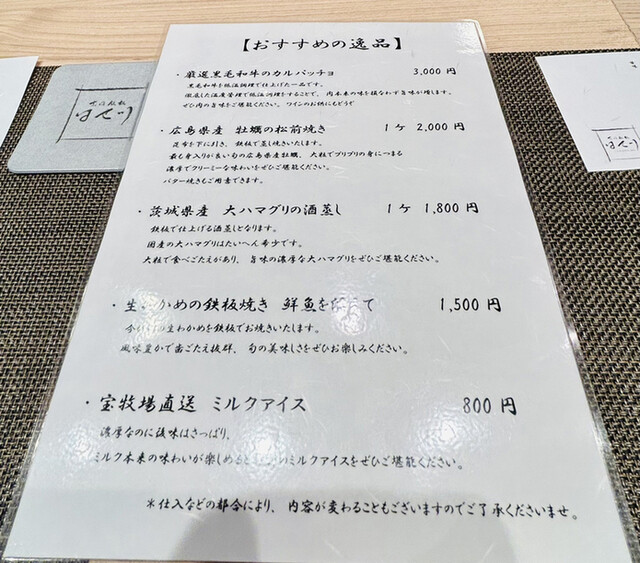 【おすすめの逸品】
・厳選黒毛和牛のカルパッチョ 3,000円
黒毛和牛を低温調理で仕上げた一品です。
徹底した温度管理で低温調理をすることで、肉本来の味を損なわず旨味が増します。
ぜひ肉の旨味をご堪能ください。ワインのお供にもどうぞ
・広島県産 牡蠣の松前焼き 1ケ 2,000円
昆布を下に引き、鉄板で蒸し焼きいたします。
最も身入りが良い旬の広島県産牡蠣、大粒でプリプリの身につまる
濃厚でクリーミーな味わいをぜひご堪能ください。
バター焼きもご用意できます。
・茨城県産 大ハマグリの酒蒸し 1ケ 1,800円
鉄板で仕上げる酒蒸しとなります。
国産の大ハマグリはたいへん希少です。
大粒で食べごたえがあり、旨味の濃厚な大ハマグリをぜひご堪能ください。
・生わかめの鉄板焼き 鮮魚を添えて 1,500円
生わかめを鉄板でお焼きいたします。
風味豊かで歯ごたえ抜群、旬の美味しさをぜひお楽しみください。
・宝牧場直送 ミルクアイス 800円
濃厚なのに後味はさっぱり、
ミルク本来の味わいが楽しめる ミルクアイスをぜひご堪能ください。
＊仕入などの都合により、内容が変わることもございますのでご了承くださいませ。